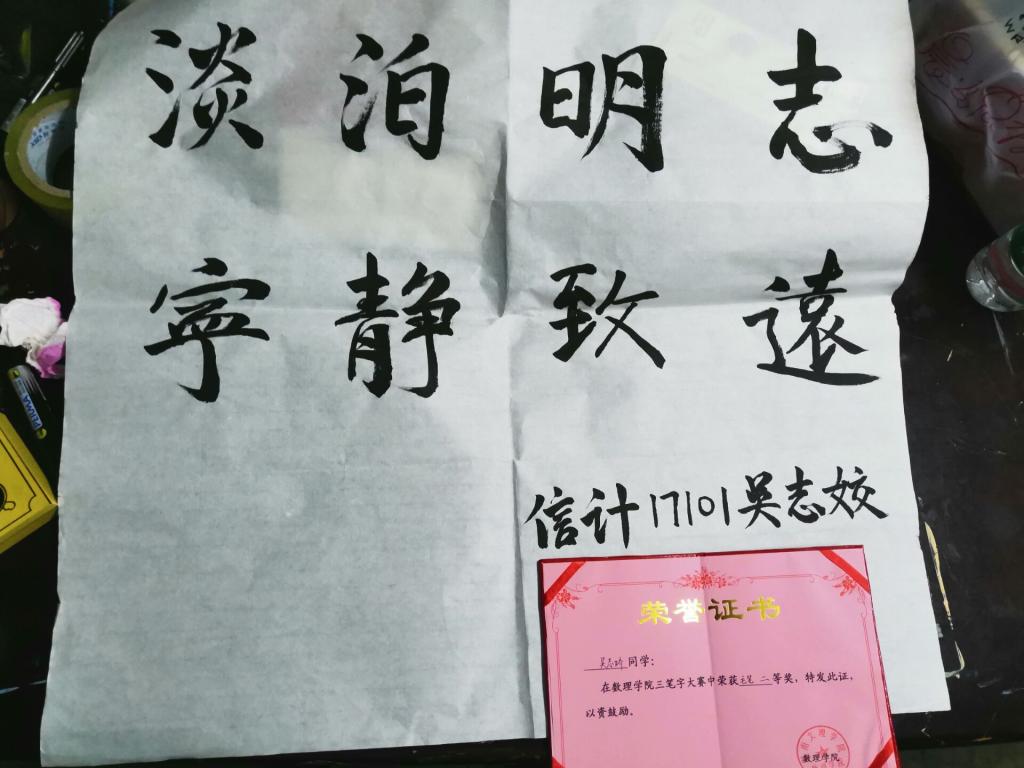 淡泊明志
寧静致遠
信计17101吴志姣
荣誉证书
吴志娇同学:
在数理学院三笔字大赛中荣获毛笔二等奖,特发此证,
以资鼓励。
数理学院